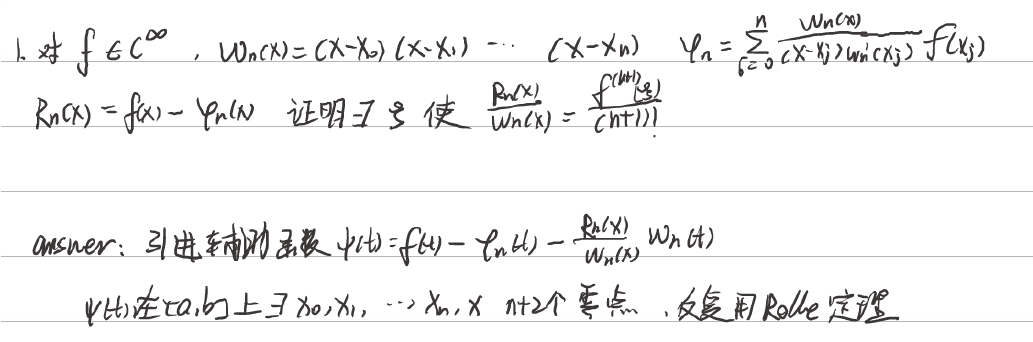 1. 对 f ∈ C^∞, Wn(x)=(x-x₀)(x-x₁) … (x-xn) φn = Σ_{j=0}^{n} Wn(x)/((x-xj)Wn'(xj)) f(xj)
Rn(x) = f(x) - φn(x) 证明∃ ξ 使 Rn(x)/Wn(x) = f^{(n+1)}(ξ)/(n+1)!
answer: 引进辅助函数 ψ(t)=f(t) - φn(t) - Rn(x)/Wn(x) Wn(t)
ψ(t)在[a,b]上∃ x₀,x₁, … xn, x n+2个零点, 反复用Rolle定理